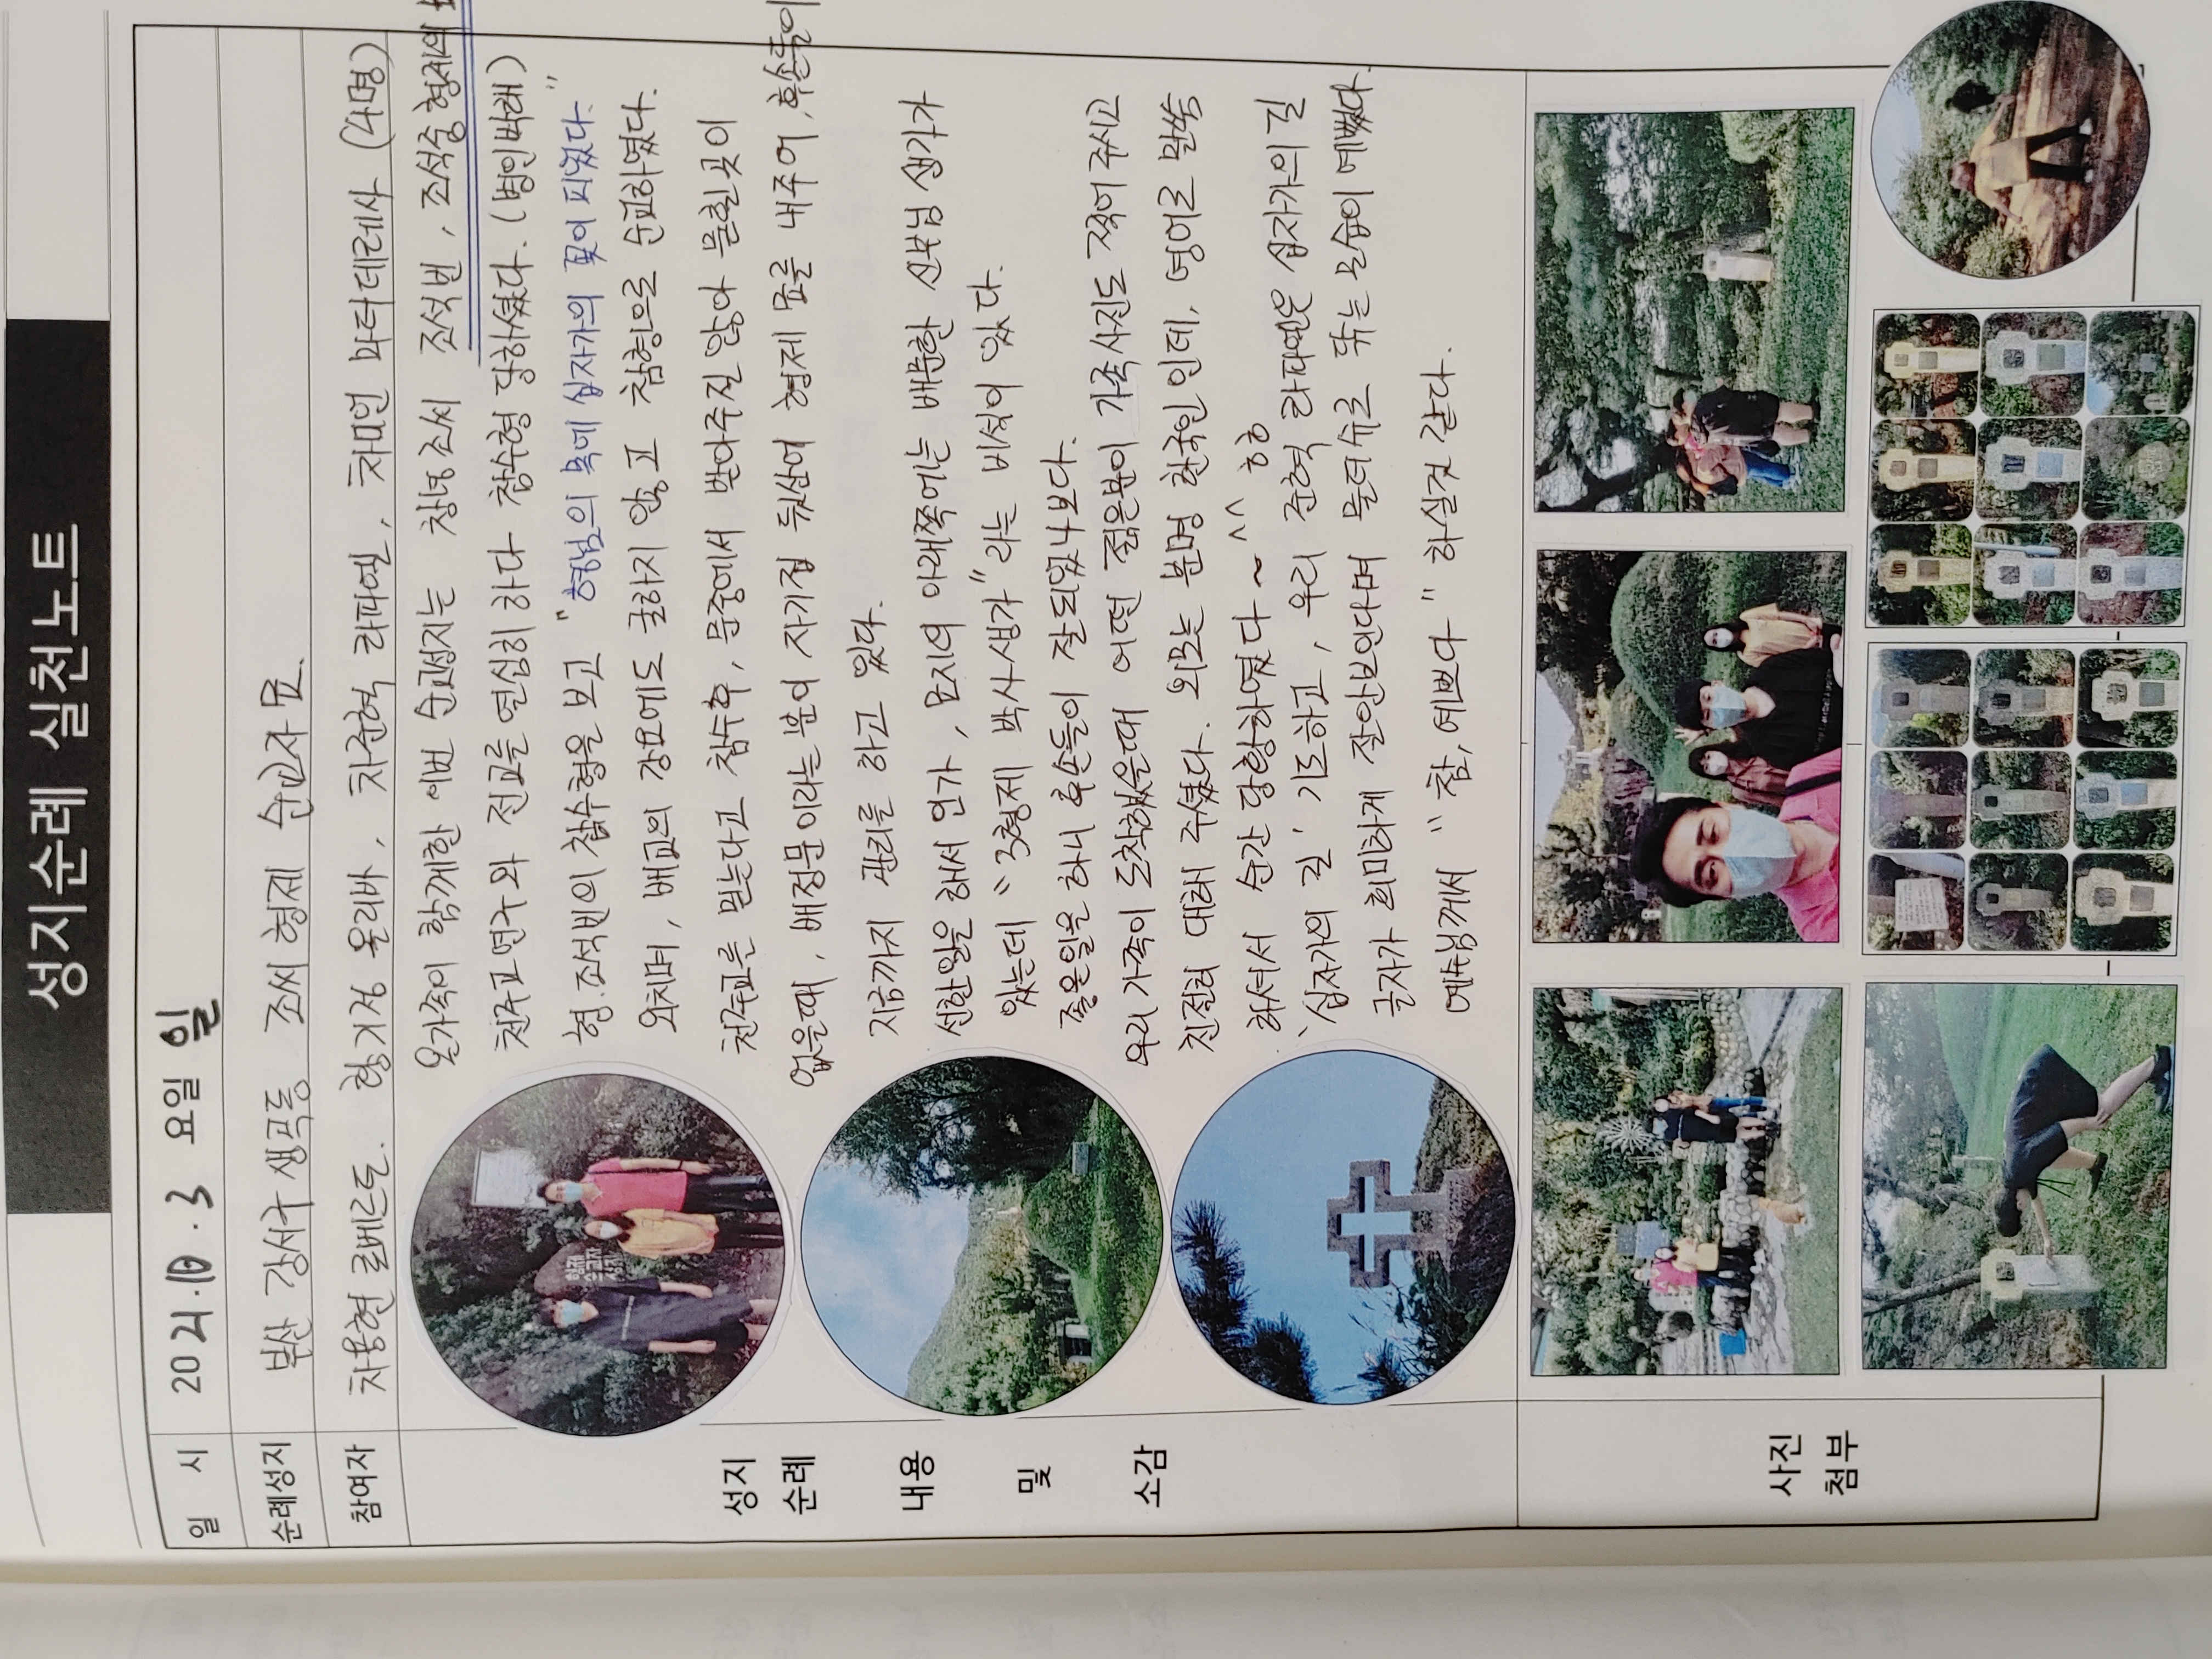 성지순례 실천노트
일 시 2021.10.3 요일 일
순례성지 부산 강서구 생곡동 조씨 형제 순교자 묘.
참여자 차용현 로베르토. 황기정 올리바, 차준혁 라파엘, 차미연 마더데레사 (4명)
성지 순례 내용 및 소감
온가족이 함께한 이번 순교성지는 창녕조씨 조석빈, 조석증 형제의
천주교 연구와 전교를 열심히 하다 참수형 당하셨다. (병인박해)
형. 조석빈의 참수형을 보고 "형님의 목에 십자가의 꽃이 피었다."
외치며, 배교의 강요에도 굴하지 않고 참형으로 순교하였다.
천주교를 믿는다고 참수후, 문중에서 받아주질 않아 묻힐곳이
없을때, 배정문이라는 분이 자기집 뒷산에 형제 묘를 내주어, 후손들이
지금까지 관리를 하고 있다.
선한일을 해서 인가, 묘지의 아래쪽에는 배문한 신부님 생가가
있는데 "3형제 박사생가"라는 비석이 있다.
좋은일을 하니 후손들이 잘되었나보다.
우리 가족이 도착했을때 어떤 젊은분이 가족사진도 찍어 주시고
친절히 대해 주셨다. 외모는 분명 한국인 인데, 영어로 말씀
하셔서 순간 당황하였다 ~ ^^ 하하
'십자가의 길' 기도하고, 우리 준혁 라파엘은 십자가의 길
글자가 희미하게 잘안보인다며 물티슈로 닦는 모습이 예뻤다.
예수님께서 "참, 예쁘다" 하실것 같다.
형제
순교자
성지
사진 첨부